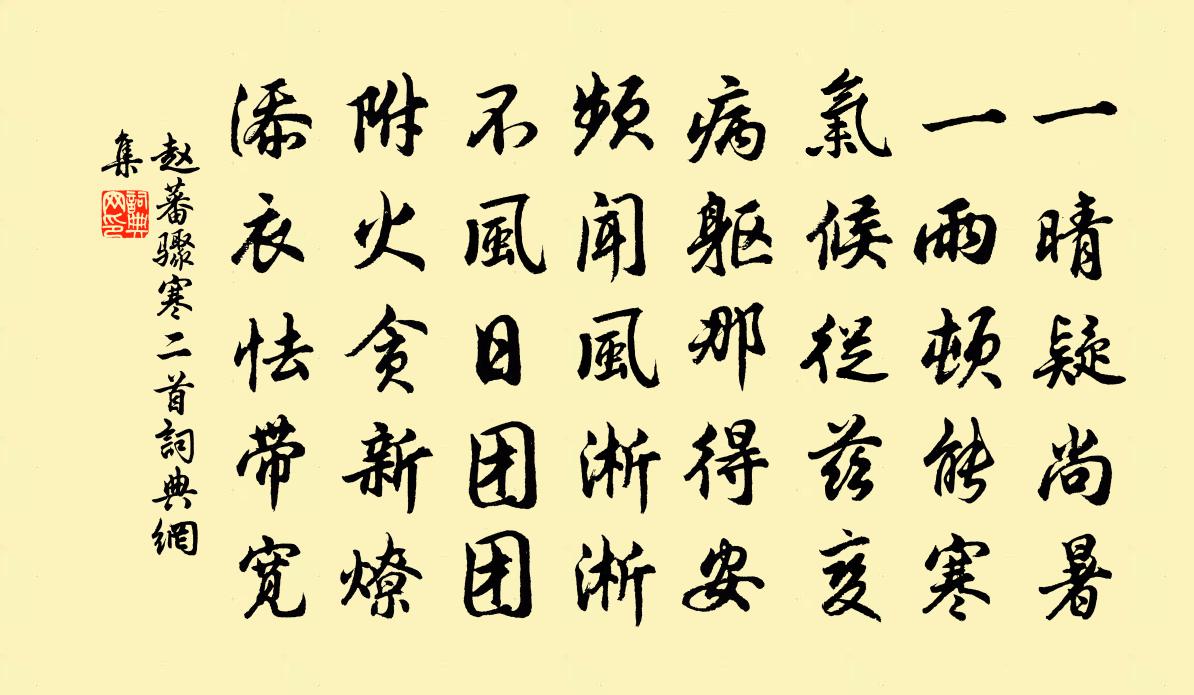 一晴疑尚暑
一雨頓能寒
氣候從茲變
病軀那得安
頻聞風淅淅
不風日团团
附火贪新燎
添衣怯带宽
赵蕃骤寒二首詞典網
集
詞典
网印